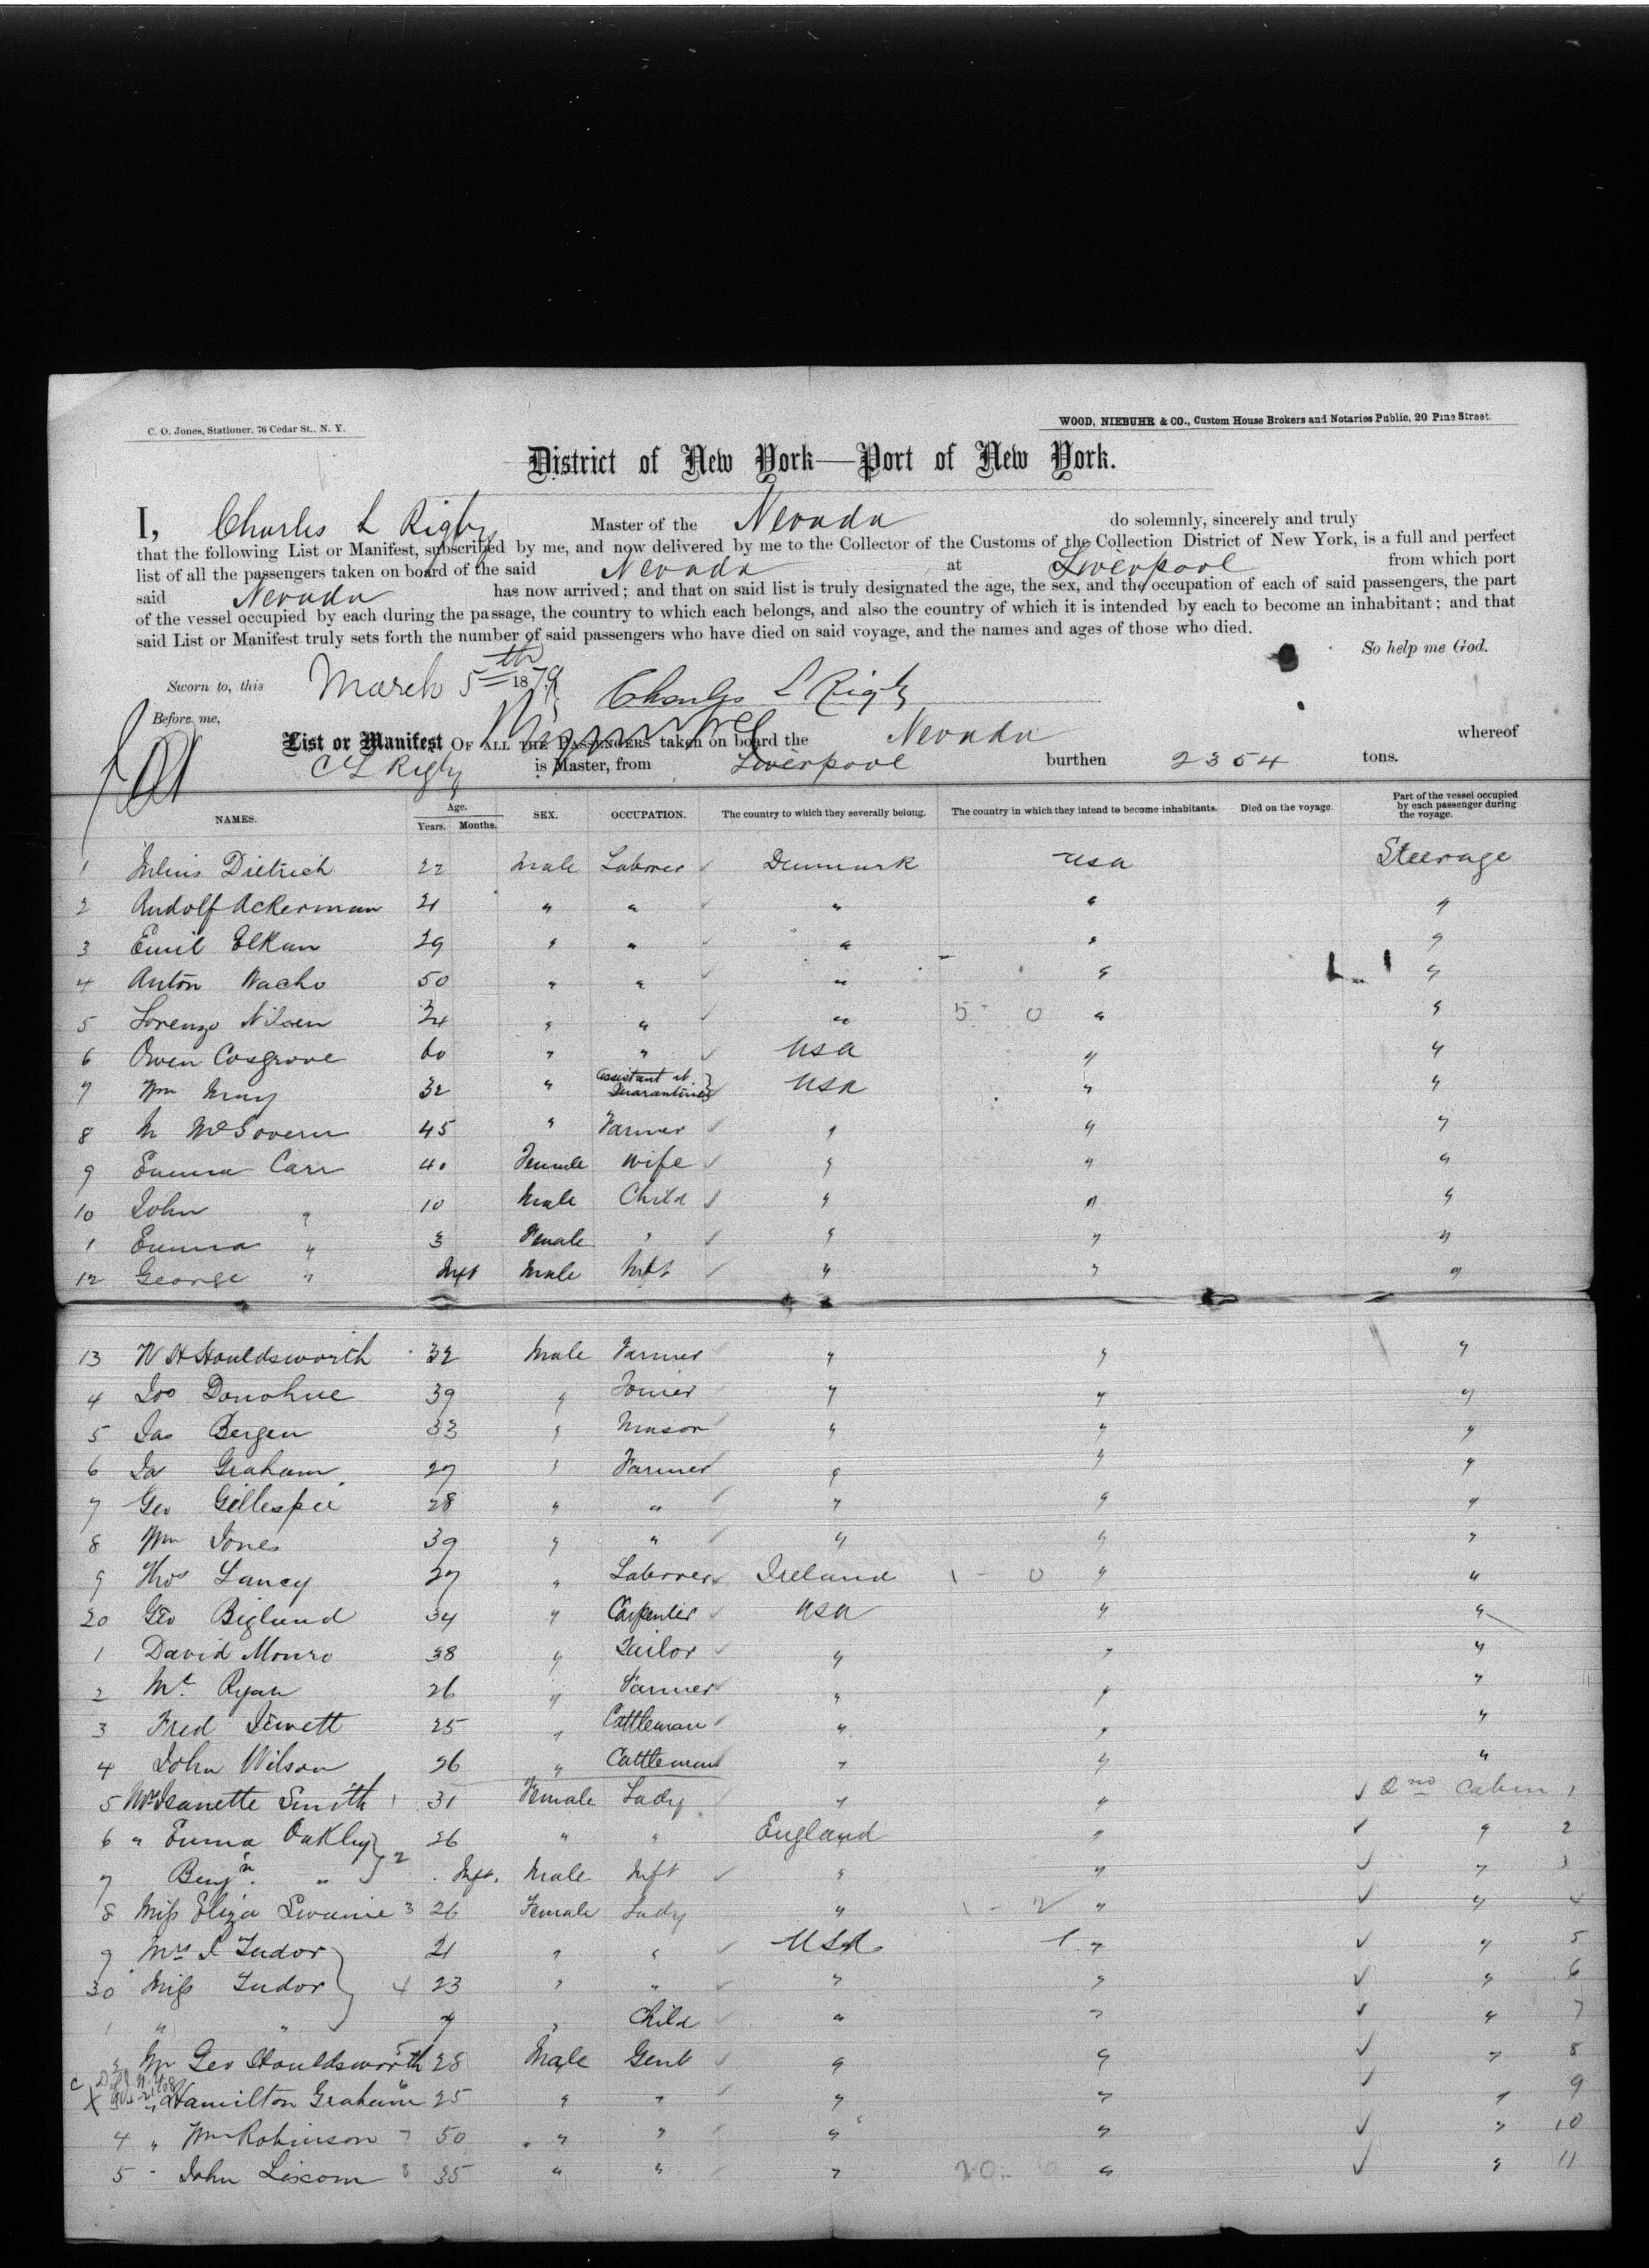 C. O. Jones, Stationer, 76 Cedar St., N. Y.
WOOD, NIEBUHR & CO., Custom House Brokers and Notaries Public, 20 Pine Street.
District of New York—Port of New York.
I, Charles L Rigby Master of the Nevada do solemnly, sincerely and truly
that the following List or Manifest, subscribed by me, and now delivered by me to the Collector of the Customs of the Collection District of New York, is a full and perfect
list of all the passengers taken on board of the said Nevada at Liverpool from which port
said Nevada has now arrived; and that on said list is truly designated the age, the sex, and the occupation of each of said passengers, the part
of the vessel occupied by each during the passage, the country to which each belongs, and also the country of which it is intended by each to become an inhabitant; and that
said List or Manifest truly sets forth the number of said passengers who have died on said voyage, and the names and ages of those who died.
So help me God.
Sworn to, this March 5th 1879 Charles L Rigby
Before me,
List or Manifest OF ALL THE PASSENGERS taken on board the Nevada whereof
C L Rigby is Master, from Liverpool burthen 2354 tons.
NAMES. Age. Years. Months. SEX. OCCUPATION. The country to which they severally belong. The country in which they intend to become inhabitants. Died on the voyage. Part of the vessel occupied by each passenger during the voyage.
1 Julius Dietrich 22 Male Laborer Denmark USA Steerage
2 Rudolf Ackerman 21 " " " " "
3 Emil Elkan 29 " " " " "
4 Anton Nacho 50 " " " " "
5 Lorenzo Nilsen 24 " " " 5 - 0 " "
6 Owen Cosgrove 60 " " USA " "
7 Wm May 32 " Assistant at Quarantine USA " "
8 M McGovern 45 " Farmer " " "
9 Emma Carr 40 Female Wife " " "
10 John " 10 Male Child " " "
1 Emma " 3 Female " " " "
12 George " Inft Male Inft " " "
13 W H Houldsworth 32 Male Farmer " " "
4 Jos Donohue 39 " Joiner " " "
5 Jas Bergen 33 " Mason " " "
6 Ja Graham 27 " Farmer " " "
7 Geo Gillespie 28 " " " " "
8 Wm Jones 39 " " " " "
9 Thos Lancy 27 " Laborer Ireland 1 - 0 " "
20 Geo Biglund 34 " Carpenter USA " "
1 David Monro 38 " Tailor " " "
2 Mt Ryan 26 " Farmer " " "
3 Fred Jewett 25 " Cattleman " " "
4 John Wilson 26 " Cattleman " " "
5 Mrs Jeanette Smith 1 31 Female Lady " " ✓ 2nd Cabin 1
6 " Emma Oakley 26 " " England " ✓ " 2
7 Benjn. " 2 Inft. Male Inft " " ✓ " 3
8 Miss Eliza Swanie 3 26 Female Lady " 1 - 2 " ✓ " 4
9 Mrs I Tudor 21 " " USA 1 " ✓ " 5
30 Miss Tudor 4 23 " " " " ✓ " 6
1 " " 7 " Child " " ✓ " 7
2 Mr Geo Houldsworth 5 28 Male Gent " " ✓ " 8
X " Hamilton Graham 6 25 " " " " ✓ " 9
4 " Wm Robinson 7 50 " " " " ✓ " 10
5 " John Liscom 8 35 " " " 20 " ✓ " 11